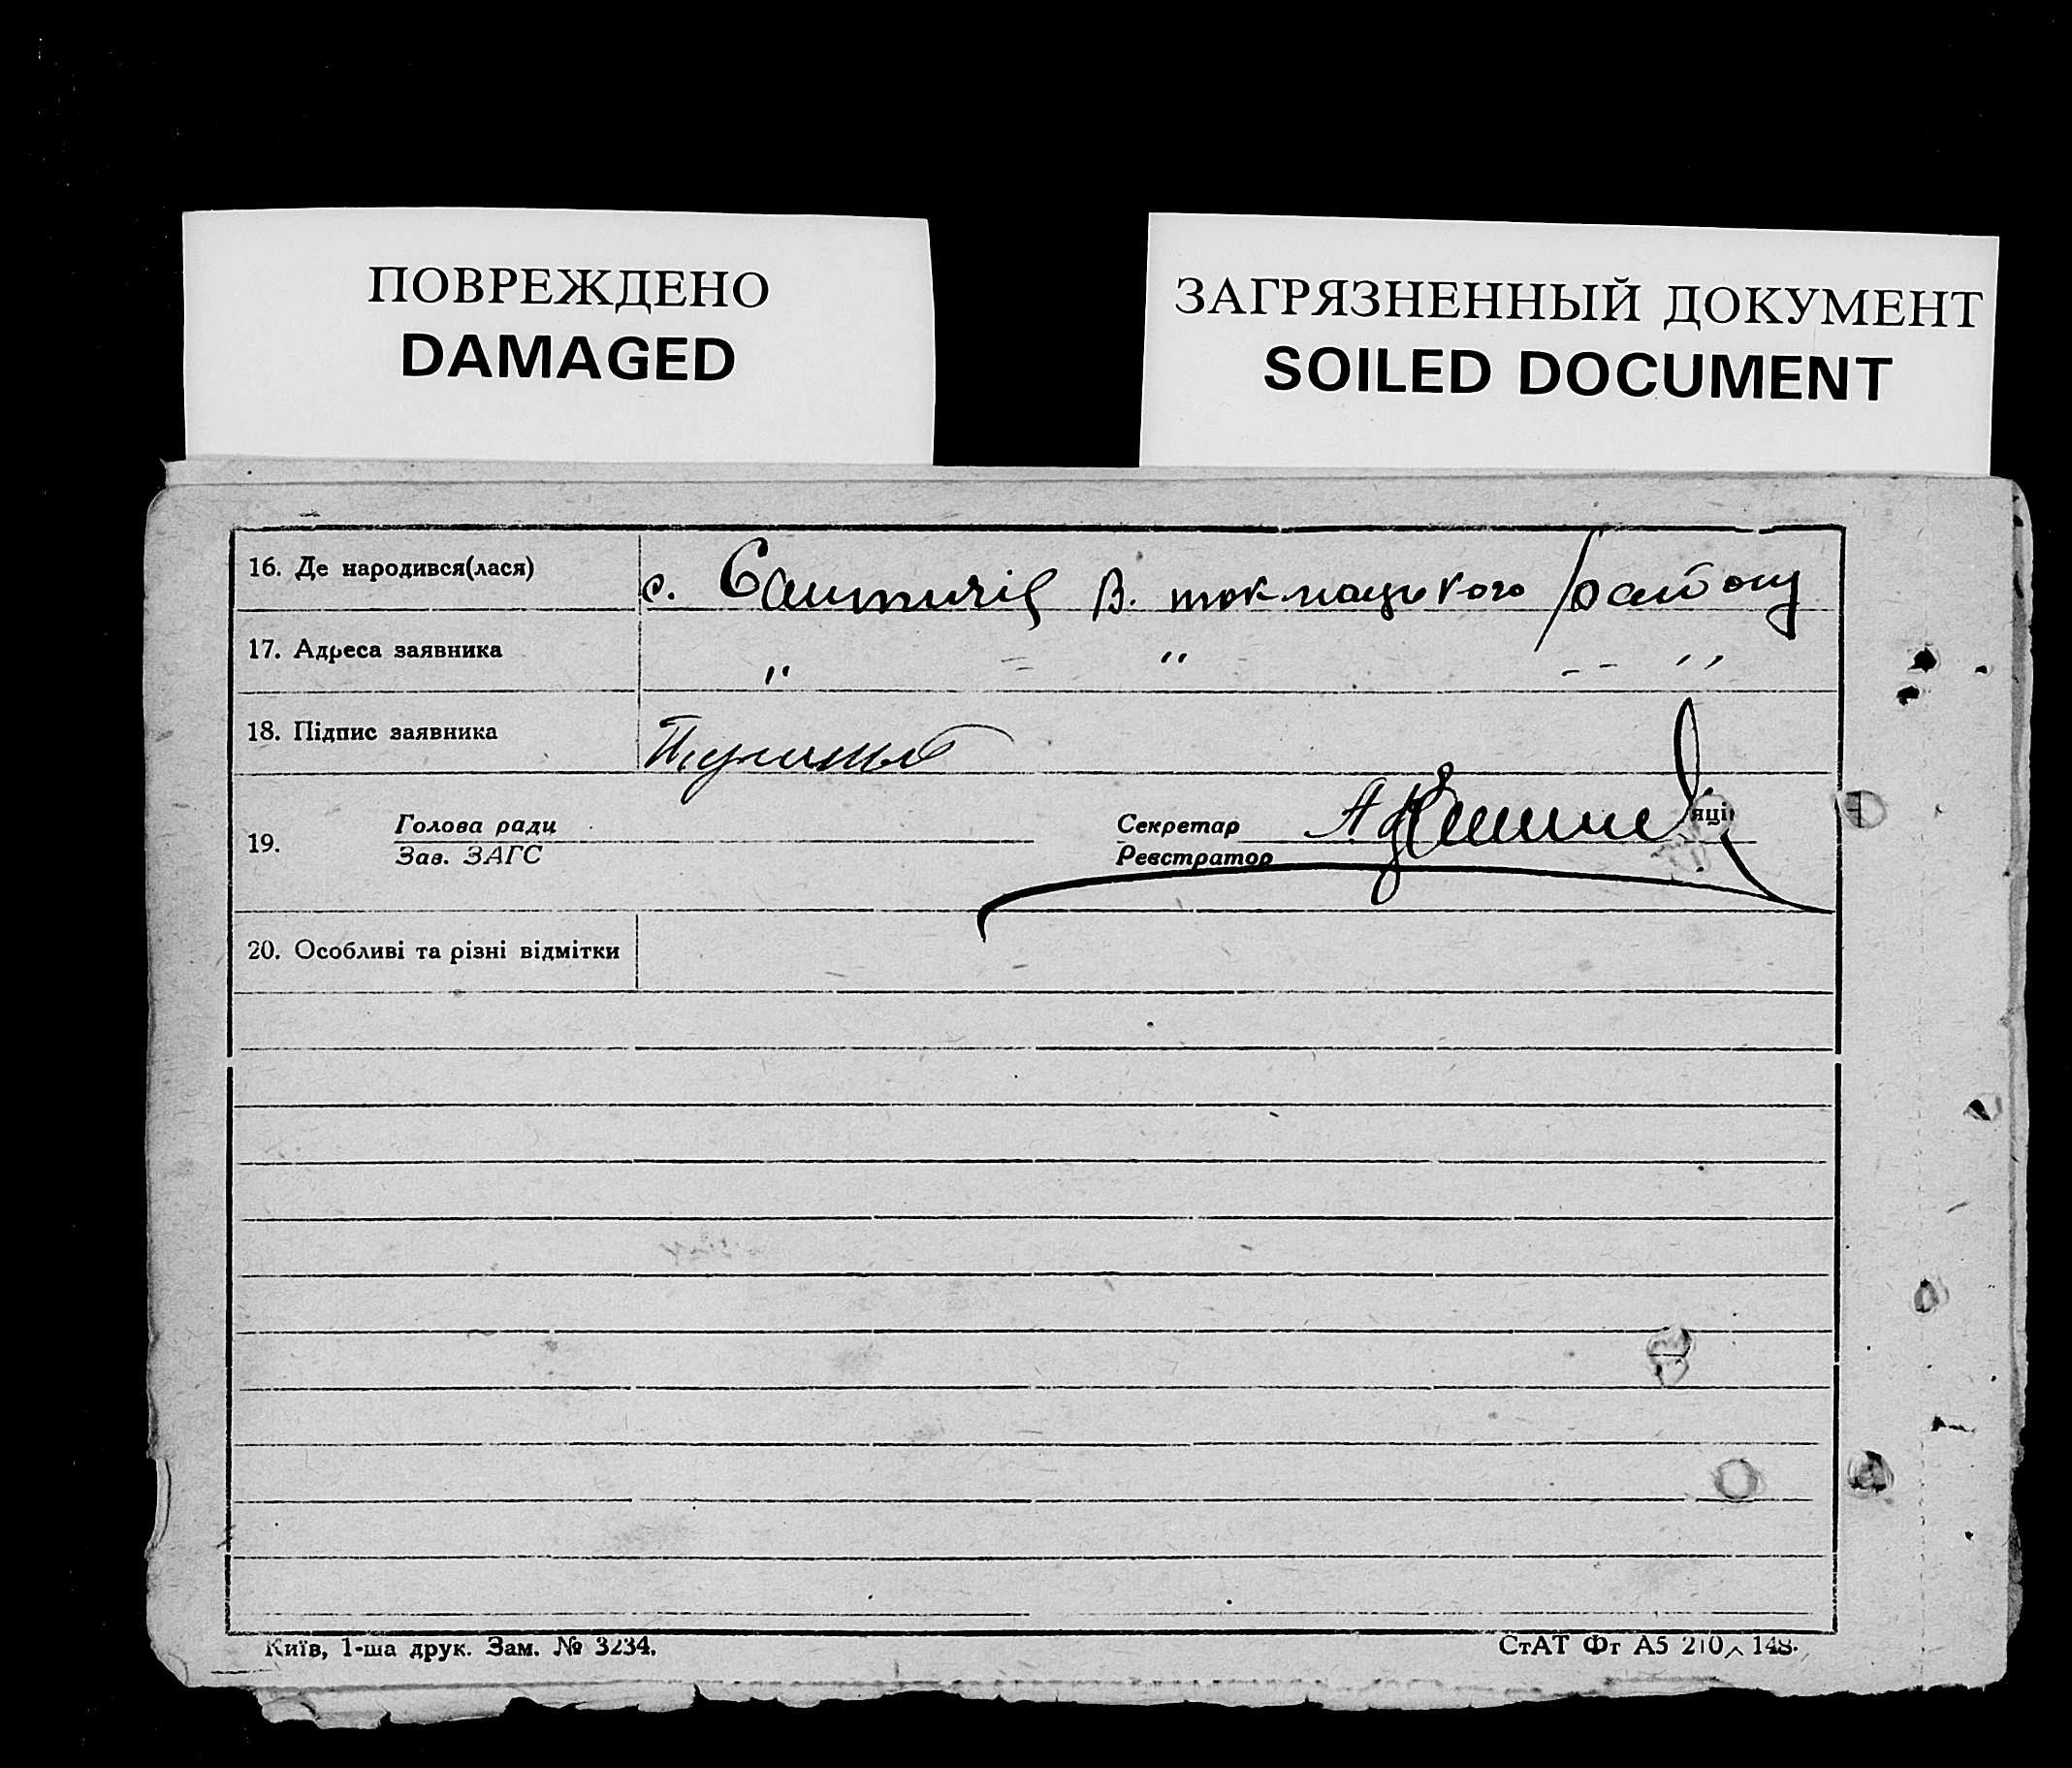 ПОВРЕЖДЕНО
DAMAGED
ЗАГРЯЗНЕННЫЙ ДОКУМЕНТ
SOILED DOCUMENT
16. Де народився(лася) с. В. токмацького району
17. Адреса заявника „ = „ -- „
18. Підпис заявника
19. Голова ради
Зав. ЗАГС
Секретар
Реєстратор
яції
20. Особливі та різні відмітки
Київ, 1-ша друк. Зам. № 3234.
СтАТ Фт А5 210 148.